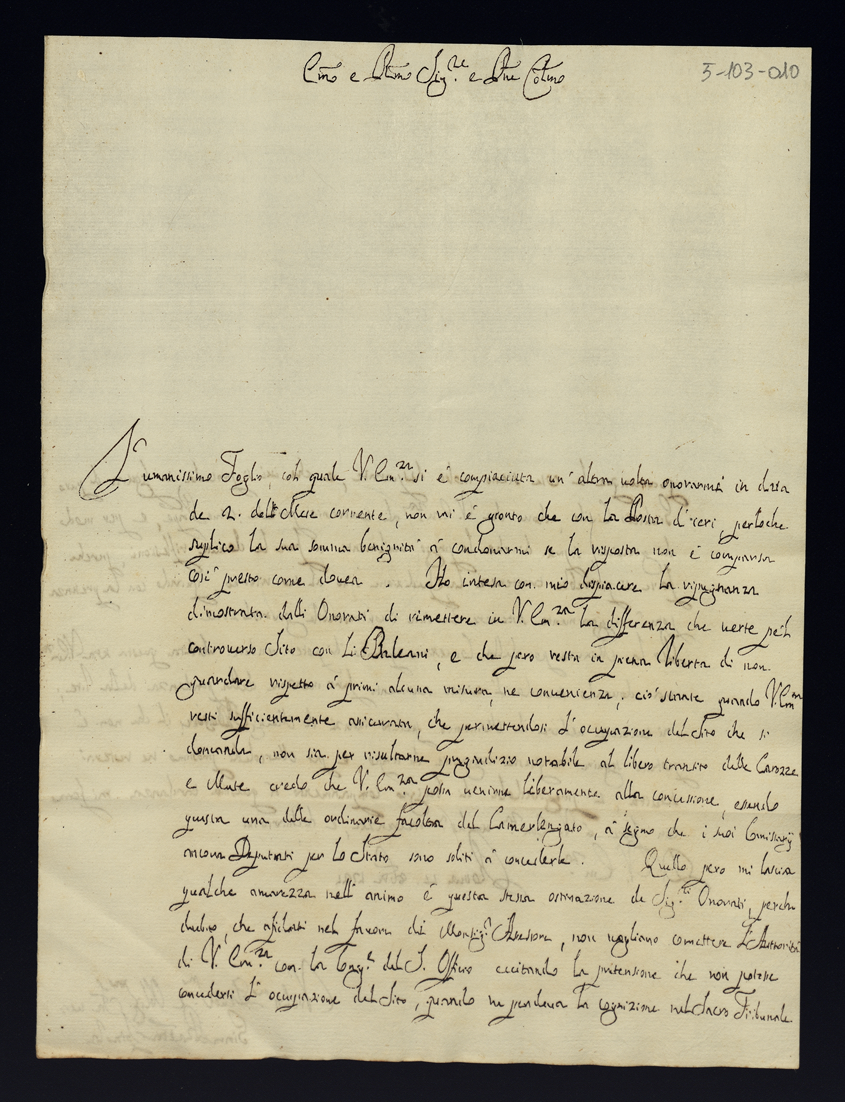 Emo e Rmo Sig.re e Pne Colmo
5-103-010
L'umanissimo Foglio, col quale V. Em.za si è compiaciuta un'altra volta onorarmi in data
de 2. dell Mese corrente, non mi è gionto che con la Posta d'ieri, perloche
suplico la sua somma benignità à condonarmi se la risposta non è comparsa
così presto come dovea. Ho inteso con mio dispiacere la ripugnanza
dimostrata dalli Onorati di rimettere in V. Em.za la differenza che verte pel
controverso Sito con li Baleani, e che pero resta in piena libertà di non
guardare rispetto à primi alcuna misura, ne convenienza; ciò stante quando V. Em.za
resti sufficientemente assicurata, che permettendosi l'occupazione del Sito che si
domanda, non sia per risultarne pregiudizio notabile al libero transito delle Carozze
e Mute credo che V. Em.za possa venirne liberamente alla concessione, essendo
questa una delle ordinarie facoltà del Camerlengato, à segno che i suoi Comissarij
ancora Deputati per lo Stato sono soliti à concederle. Quello pero mi lascia
qualche amarezza nell'animo è questa stessa ostinazione de Sig.ri Onorati, perche
dubito, che afidati nel favore di Monsig.r Assessore, non vogliano comettere l'Autorità
di V. Em.za con la Cong.ne del S. Offizio eccitando la pretensione che non potesse
concedersi l'occupazione del Sito, quando ne pendeva la cognizione nel Sacro Tribunale